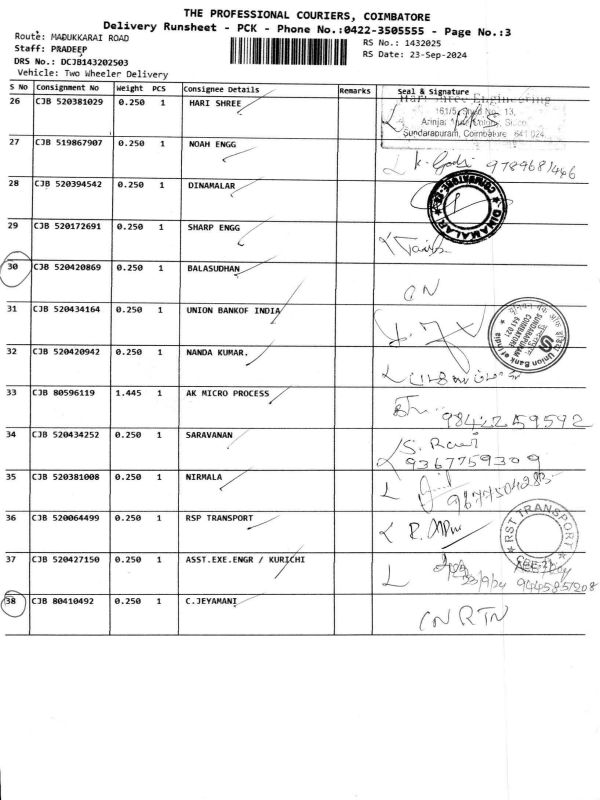 THE PROFESSIONAL COURIERS, COIMBATORE
Delivery Runsheet - PCK - Phone No.:0422-3505555 - Page No.:3
Route: MADUKKARAI ROAD
RS No.: 1432025
Staff: PRADEEP
RS Date: 23-Sep-2024
DRS No.: DCJB143202503
Vehicle: Two Wheeler Delivery
S No Consignment No Weight PCS Consignee Details Remarks Seal & Signature
26 CJB 520381029 0.250 1 HARI SHREE
Hari Shree Engineering
161/5, Shed No. 13,
Sundarapuram, Coimbatore 641 024
27 CJB 519867907 0.250 1 NOAH ENGG
28 CJB 520394542 0.250 1 DINAMALAR
DINAMALAR
29 CJB 520172691 0.250 1 SHARP ENGG
30 CJB 520420869 0.250 1 BALASUDHAN
CN
31 CJB 520434164 0.250 1 UNION BANKOF INDIA
Union Bank of India
SUNDARAPURAM
COIMBATORE
32 CJB 520420942 0.250 1 NANDA KUMAR.
33 CJB 80596119 1.445 1 AK MICRO PROCESS
9842259592
34 CJB 520434252 0.250 1 SARAVANAN
S. Ravi
9367759309
35 CJB 520381008 0.250 1 NIRMALA
36 CJB 520064499 0.250 1 RSP TRANSPORT
RST TRANSPORT
CBE-21
37 CJB 520427150 0.250 1 ASST.EXE.ENGR / KURICHI
23/9/24 9445851208
38 CJB 80410492 0.250 1 C.JEYAMANI
CN RTN